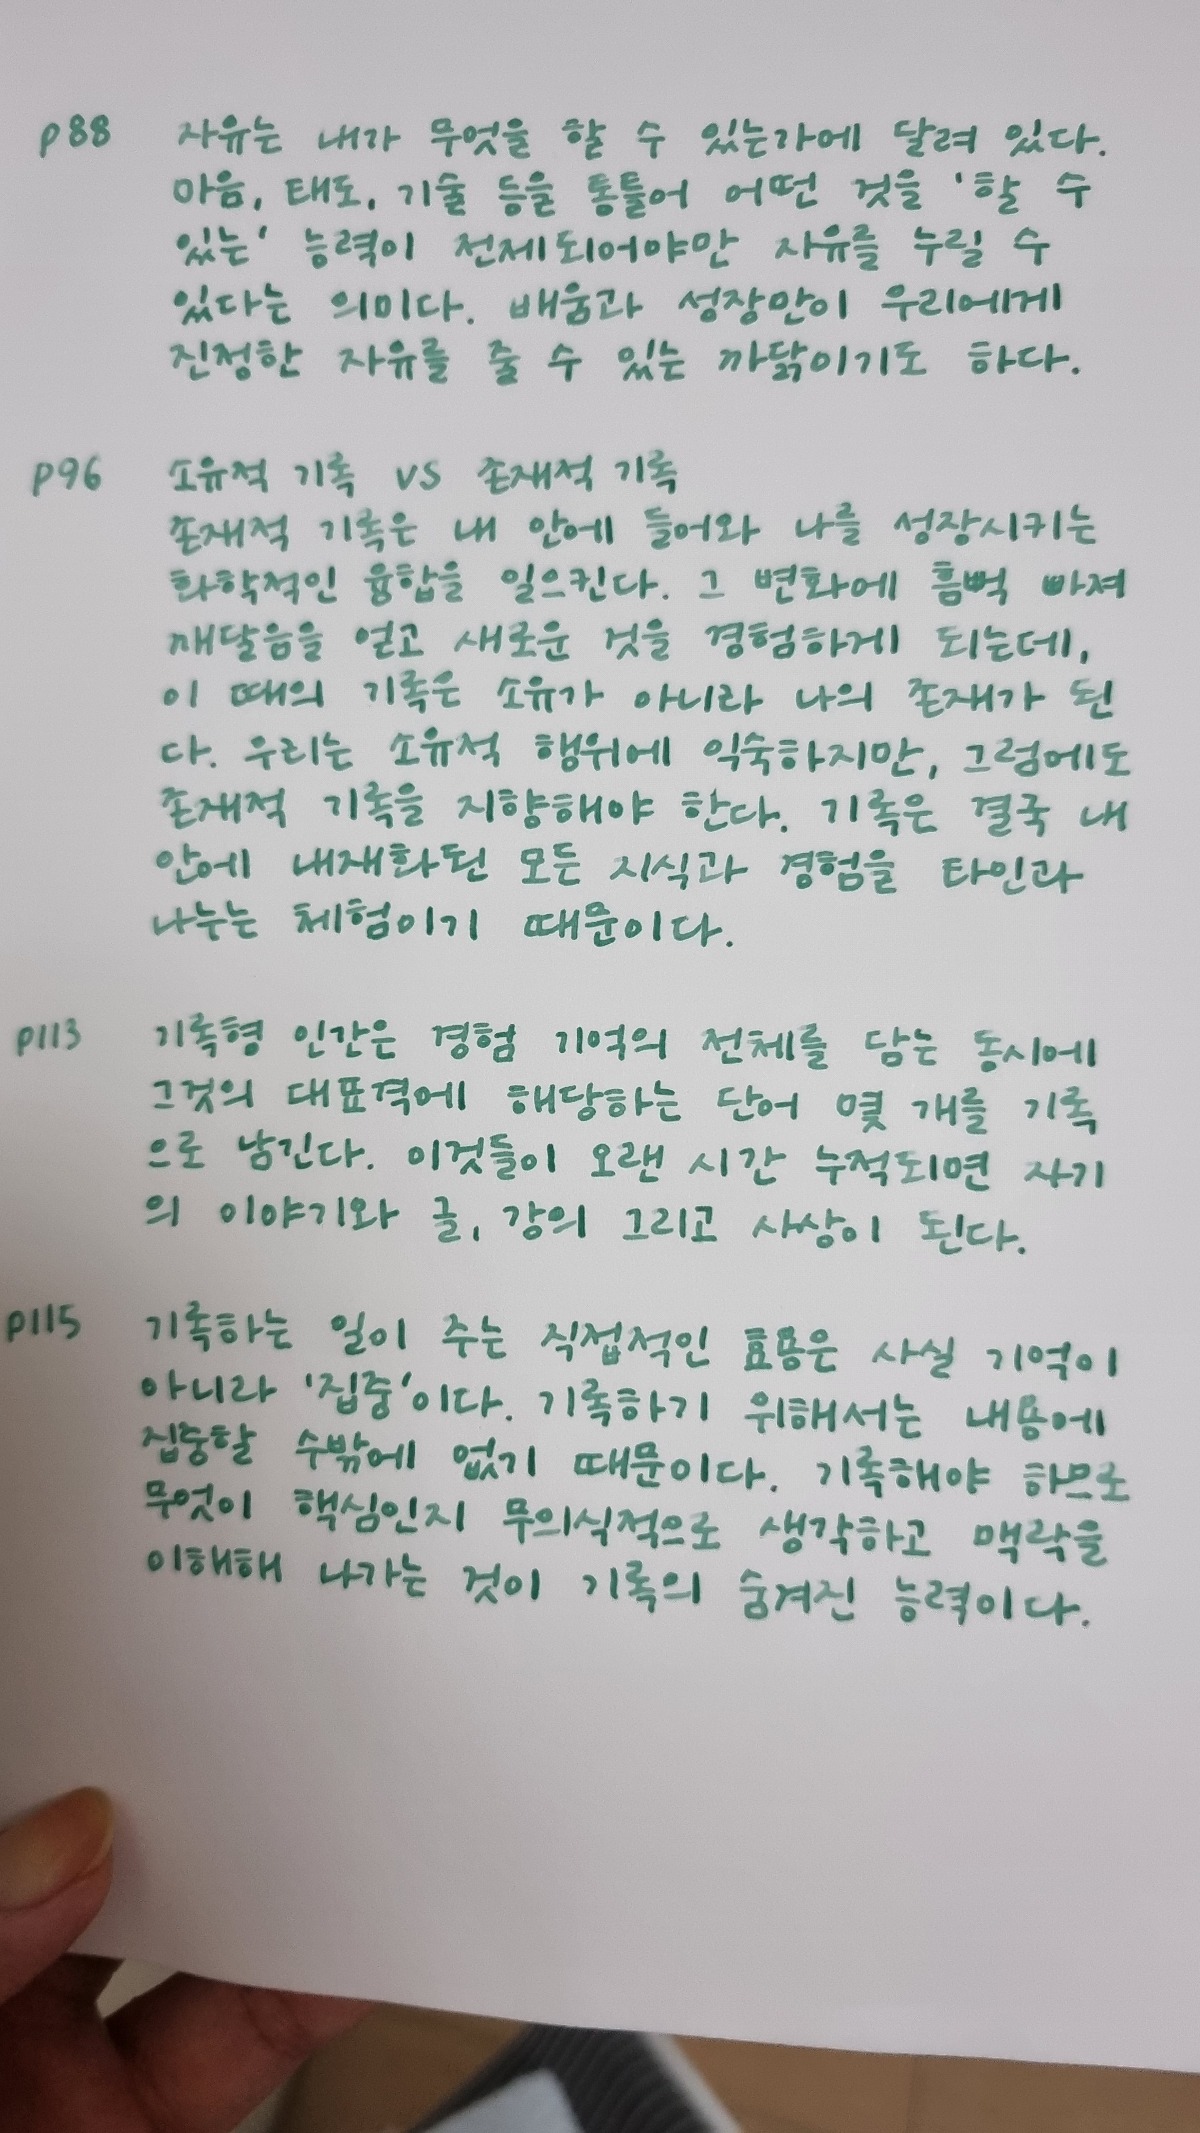 p88 자유는 내가 무엇을 할 수 있는가에 달려 있다.
마음, 태도, 기술 등을 통틀어 어떤 것을 '할 수
있는' 능력이 전제되어야만 자유를 누릴 수
있다는 의미다. 배움과 성장만이 우리에게
진정한 자유를 줄 수 있는 까닭이기도 하다.
p96 소유적 기록 VS 존재적 기록
존재적 기록은 내 안에 들어와 나를 성장시키는
화학적인 융합을 일으킨다. 그 변화에 흠뻑 빠져
깨달음을 얻고 새로운 것을 경험하게 되는데,
이 때의 기록은 소유가 아니라 나의 존재가 된
다. 우리는 소유적 행위에 익숙하지만, 그럼에도
존재적 기록을 지향해야 한다. 기록은 결국 내
안에 내재화된 모든 지식과 경험을 타인과
나누는 체험이기 때문이다.
p113 기록형 인간은 경험 기억의 전체를 담는 동시에
그것의 대표격에 해당하는 단어 몇 개를 기록
으로 남긴다. 이것들이 오랜 시간 누적되면 자기
의 이야기와 글, 강의 그리고 사상이 된다.
p115 기록하는 일이 주는 직접적인 효용은 사실 기억이
아니라 '집중'이다. 기록하기 위해서는 내용에
집중할 수밖에 없기 때문이다. 기록해야 하므로
무엇이 핵심인지 무의식적으로 생각하고 맥락을
이해해 나가는 것이 기록의 숨겨진 능력이다.